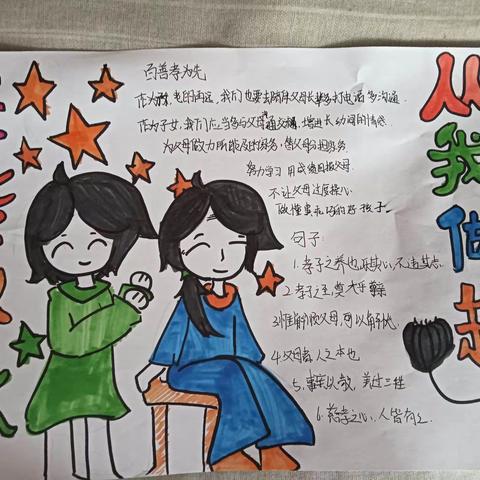 百善孝为先
我们也要去陪伴父母长辈多打电话多沟通
作为子女,我们应当多与父母通交流,增进长幼间的情感
为父母做力所能及的家务,替父母分担家务
努力学习 用成绩回报父母
不让父母过度操心
做懂事乖巧的好孩子
句子:
1.孝子之养也,乐其心,不违其志
2.孝子之至,莫大乎尊亲
3.惟孝顺父母,可以解忧
4.父母者,人之本也
5.事亲以敬,美过三牲
6.慈孝之心,人皆有之
从我做起